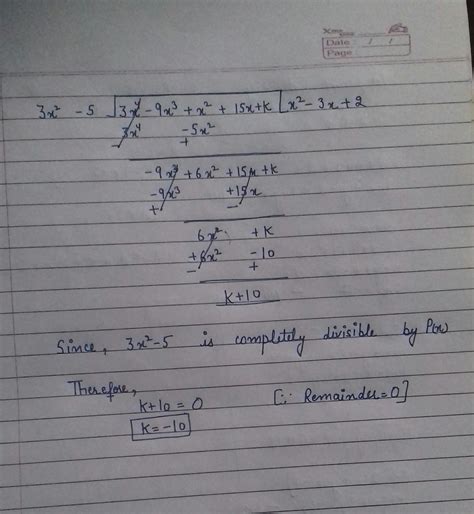 Date / /
Page
3x² - 5 ) 3x⁴ - 9x³ + x² + 15x + k ( x² - 3x + 2
3x⁴ - 5x²
- +
- 9x³ + 6x² + 15x + k
- 9x³ + 15x
+ -
6x² + k
+ 6x² - 10
- +
k + 10
Since, 3x² - 5 is completely divisible by P(x)
Therefore,
k + 10 = 0 [∵ Remainder = 0]
k = - 10